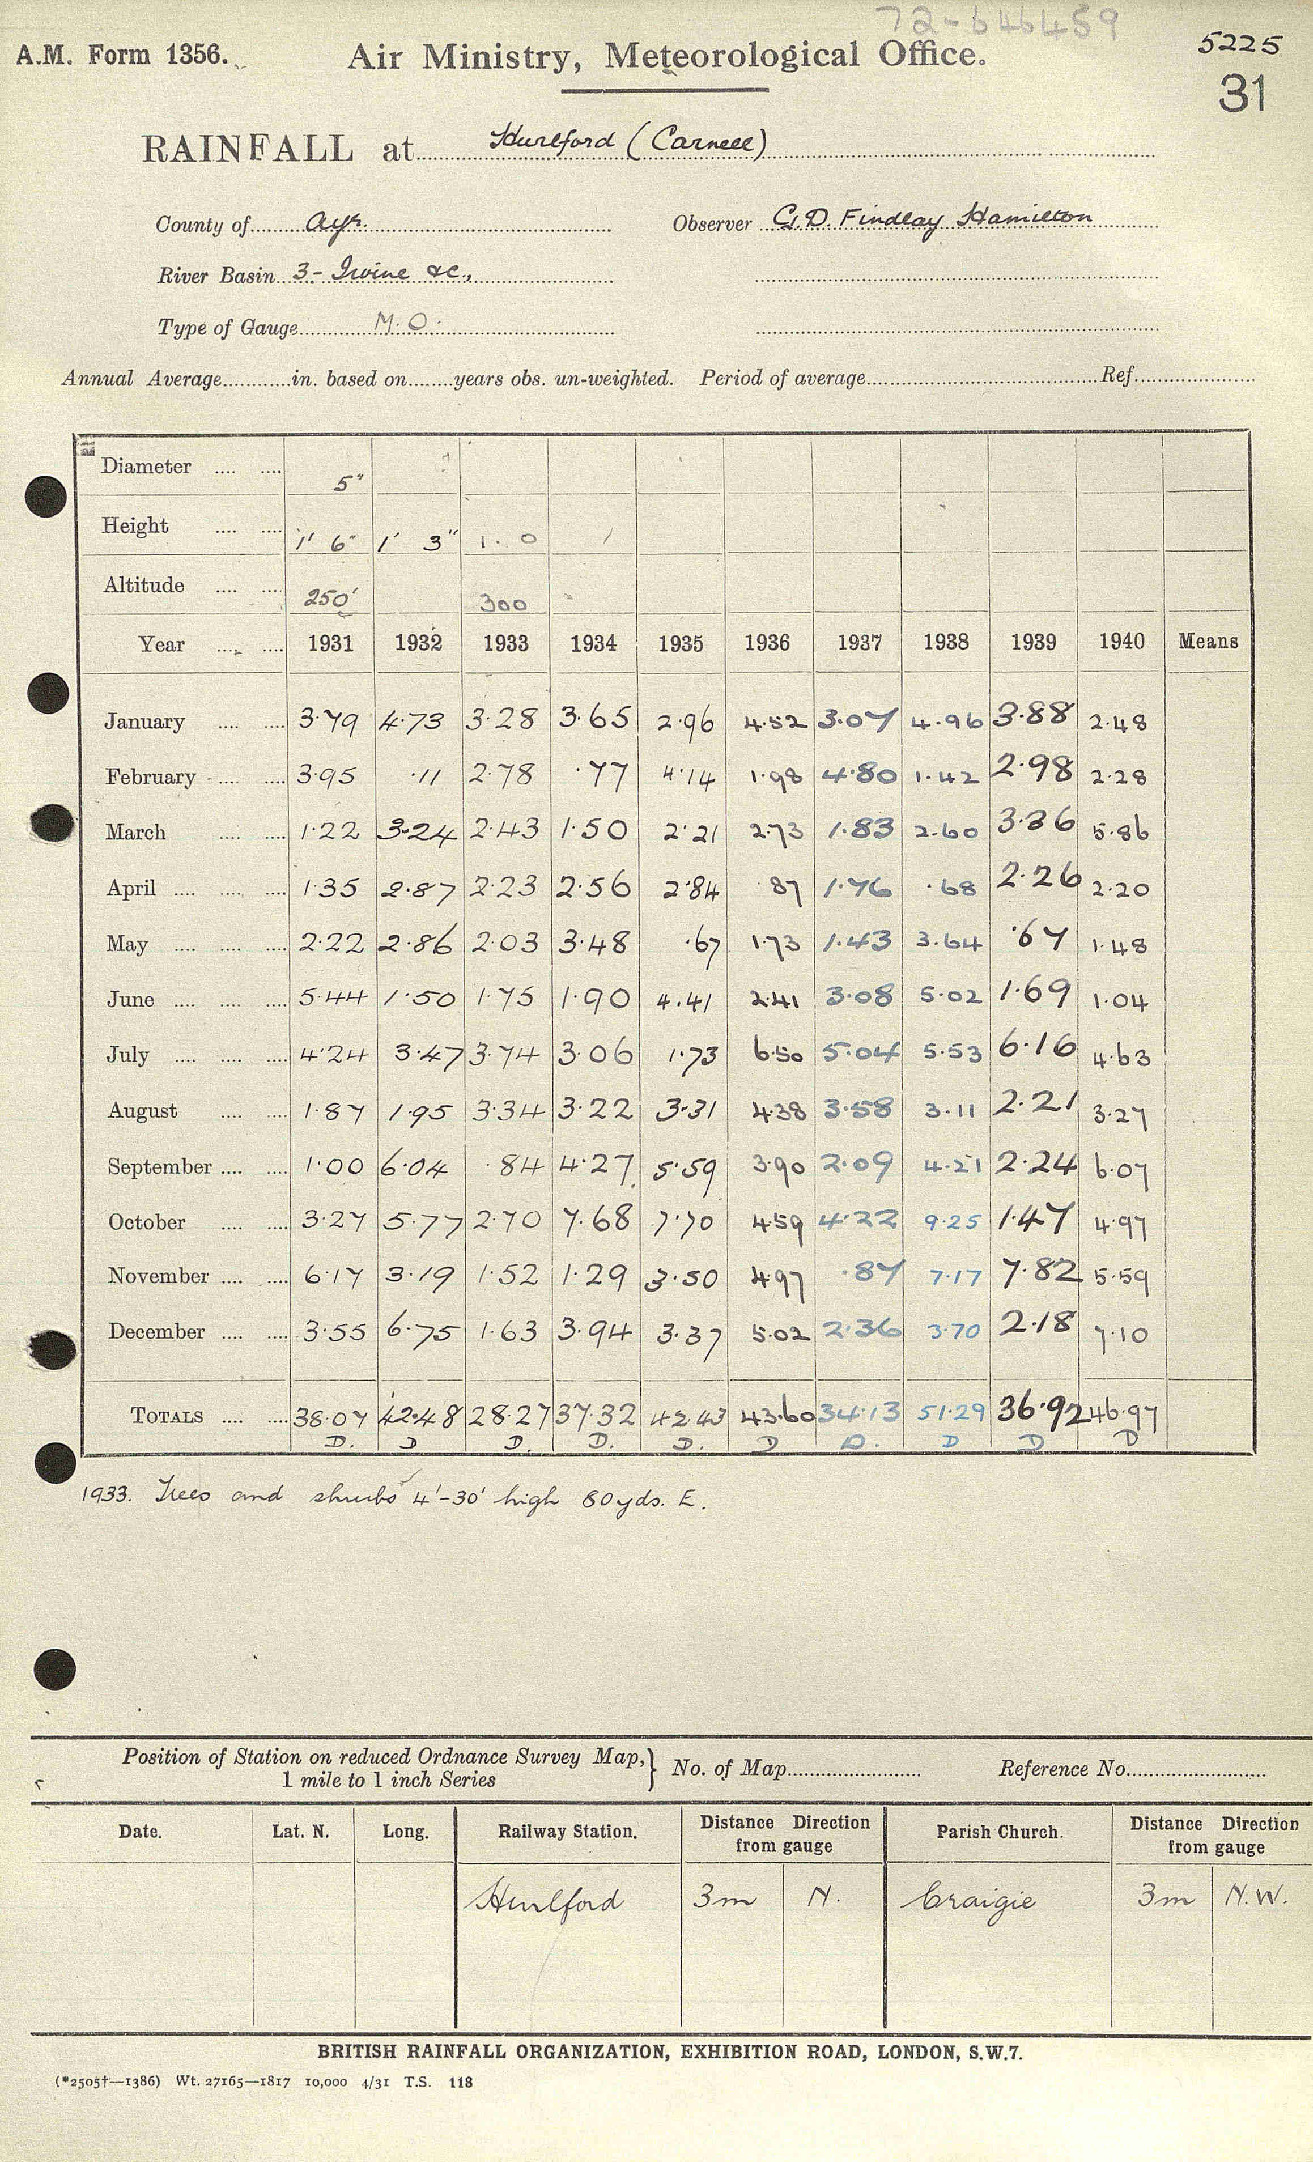 72-646459
A.M. Form 1356. Air Ministry, Meteorological Office. 5225
31
RAINFALL at Hurlford (Carnell)
County of Ayr. Observer G.D. Findlay Hamilton
River Basin 3- Irvine &c.,
Type of Gauge M.O.
Annual Average in. based on years obs. un-weighted. Period of average Ref.
Diameter 5"
Height 1' 6" 1' 3" 1. 0
Altitude 250' 300
Year 1931 1932 1933 1934 1935 1936 1937 1938 1939 1940 Means
January 3.79 4.73 3.28 3.65 2.96 4.52 3.07 4.96 3.88 2.48
February 3.95 .11 2.78 .77 4.14 1.98 4.80 1.42 2.98 2.28
March 1.22 3.24 2.43 1.50 2.21 2.73 1.83 2.60 3.36 5.86
April 1.35 2.87 2.23 2.56 2.84 87 1.76 .68 2.26 2.20
May 2.22 2.86 2.03 3.48 .67 1.73 1.43 3.64 .67 1.48
June 5.44 1.50 1.75 1.90 4.41 2.41 3.08 5.02 1.69 1.04
July 4.24 3.47 3.74 3.06 1.73 6.50 5.04 5.53 6.16 4.63
August 1.87 1.95 3.34 3.22 3.31 4.38 3.58 3.11 2.21 3.27
September 1.00 6.04 .84 4.27 5.59 3.90 2.09 4.21 2.24 6.07
October 3.27 5.77 2.70 7.68 7.70 4.59 4.22 9.25 1.47 4.97
November 6.17 3.19 1.52 1.29 3.50 4.97 .87 7.17 7.82 5.59
December 3.55 6.75 1.63 3.94 3.37 5.02 2.36 3.70 2.18 7.10
TOTALS 38.07 42.48 28.27 37.32 42.43 43.60 34.13 51.29 36.92 46.97
D. D D. D. D. D D. D D D
1933. Trees and shrubs 4'-30' high 80yds. E.
Position of Station on reduced Ordnance Survey Map, } No. of Map Reference No.
1 mile to 1 inch Series
Date. Lat. N. Long. Railway Station. Distance Direction from gauge Parish Church. Distance Direction from gauge
Hurlford 3m N. Craigie 3m N.W.
BRITISH RAINFALL ORGANIZATION, EXHIBITION ROAD, LONDON, S.W.7.
(*2505†—1386) Wt. 27165—1817 10,000 4/31 T.S. 118